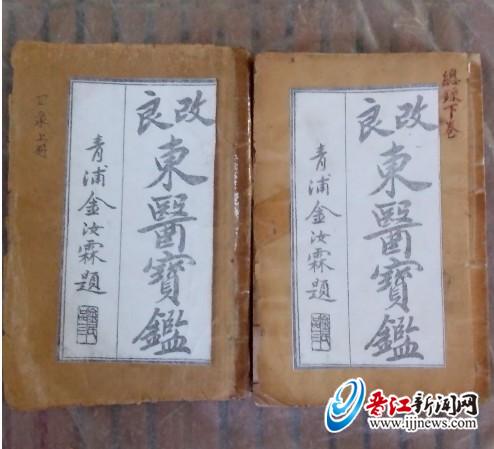 改良
東醫寶鑑
青浦金汝霖題
上册
改良
東醫寶鑑
青浦金汝霖題
總錄下卷
晋江新闻网
www.ijjnews.com